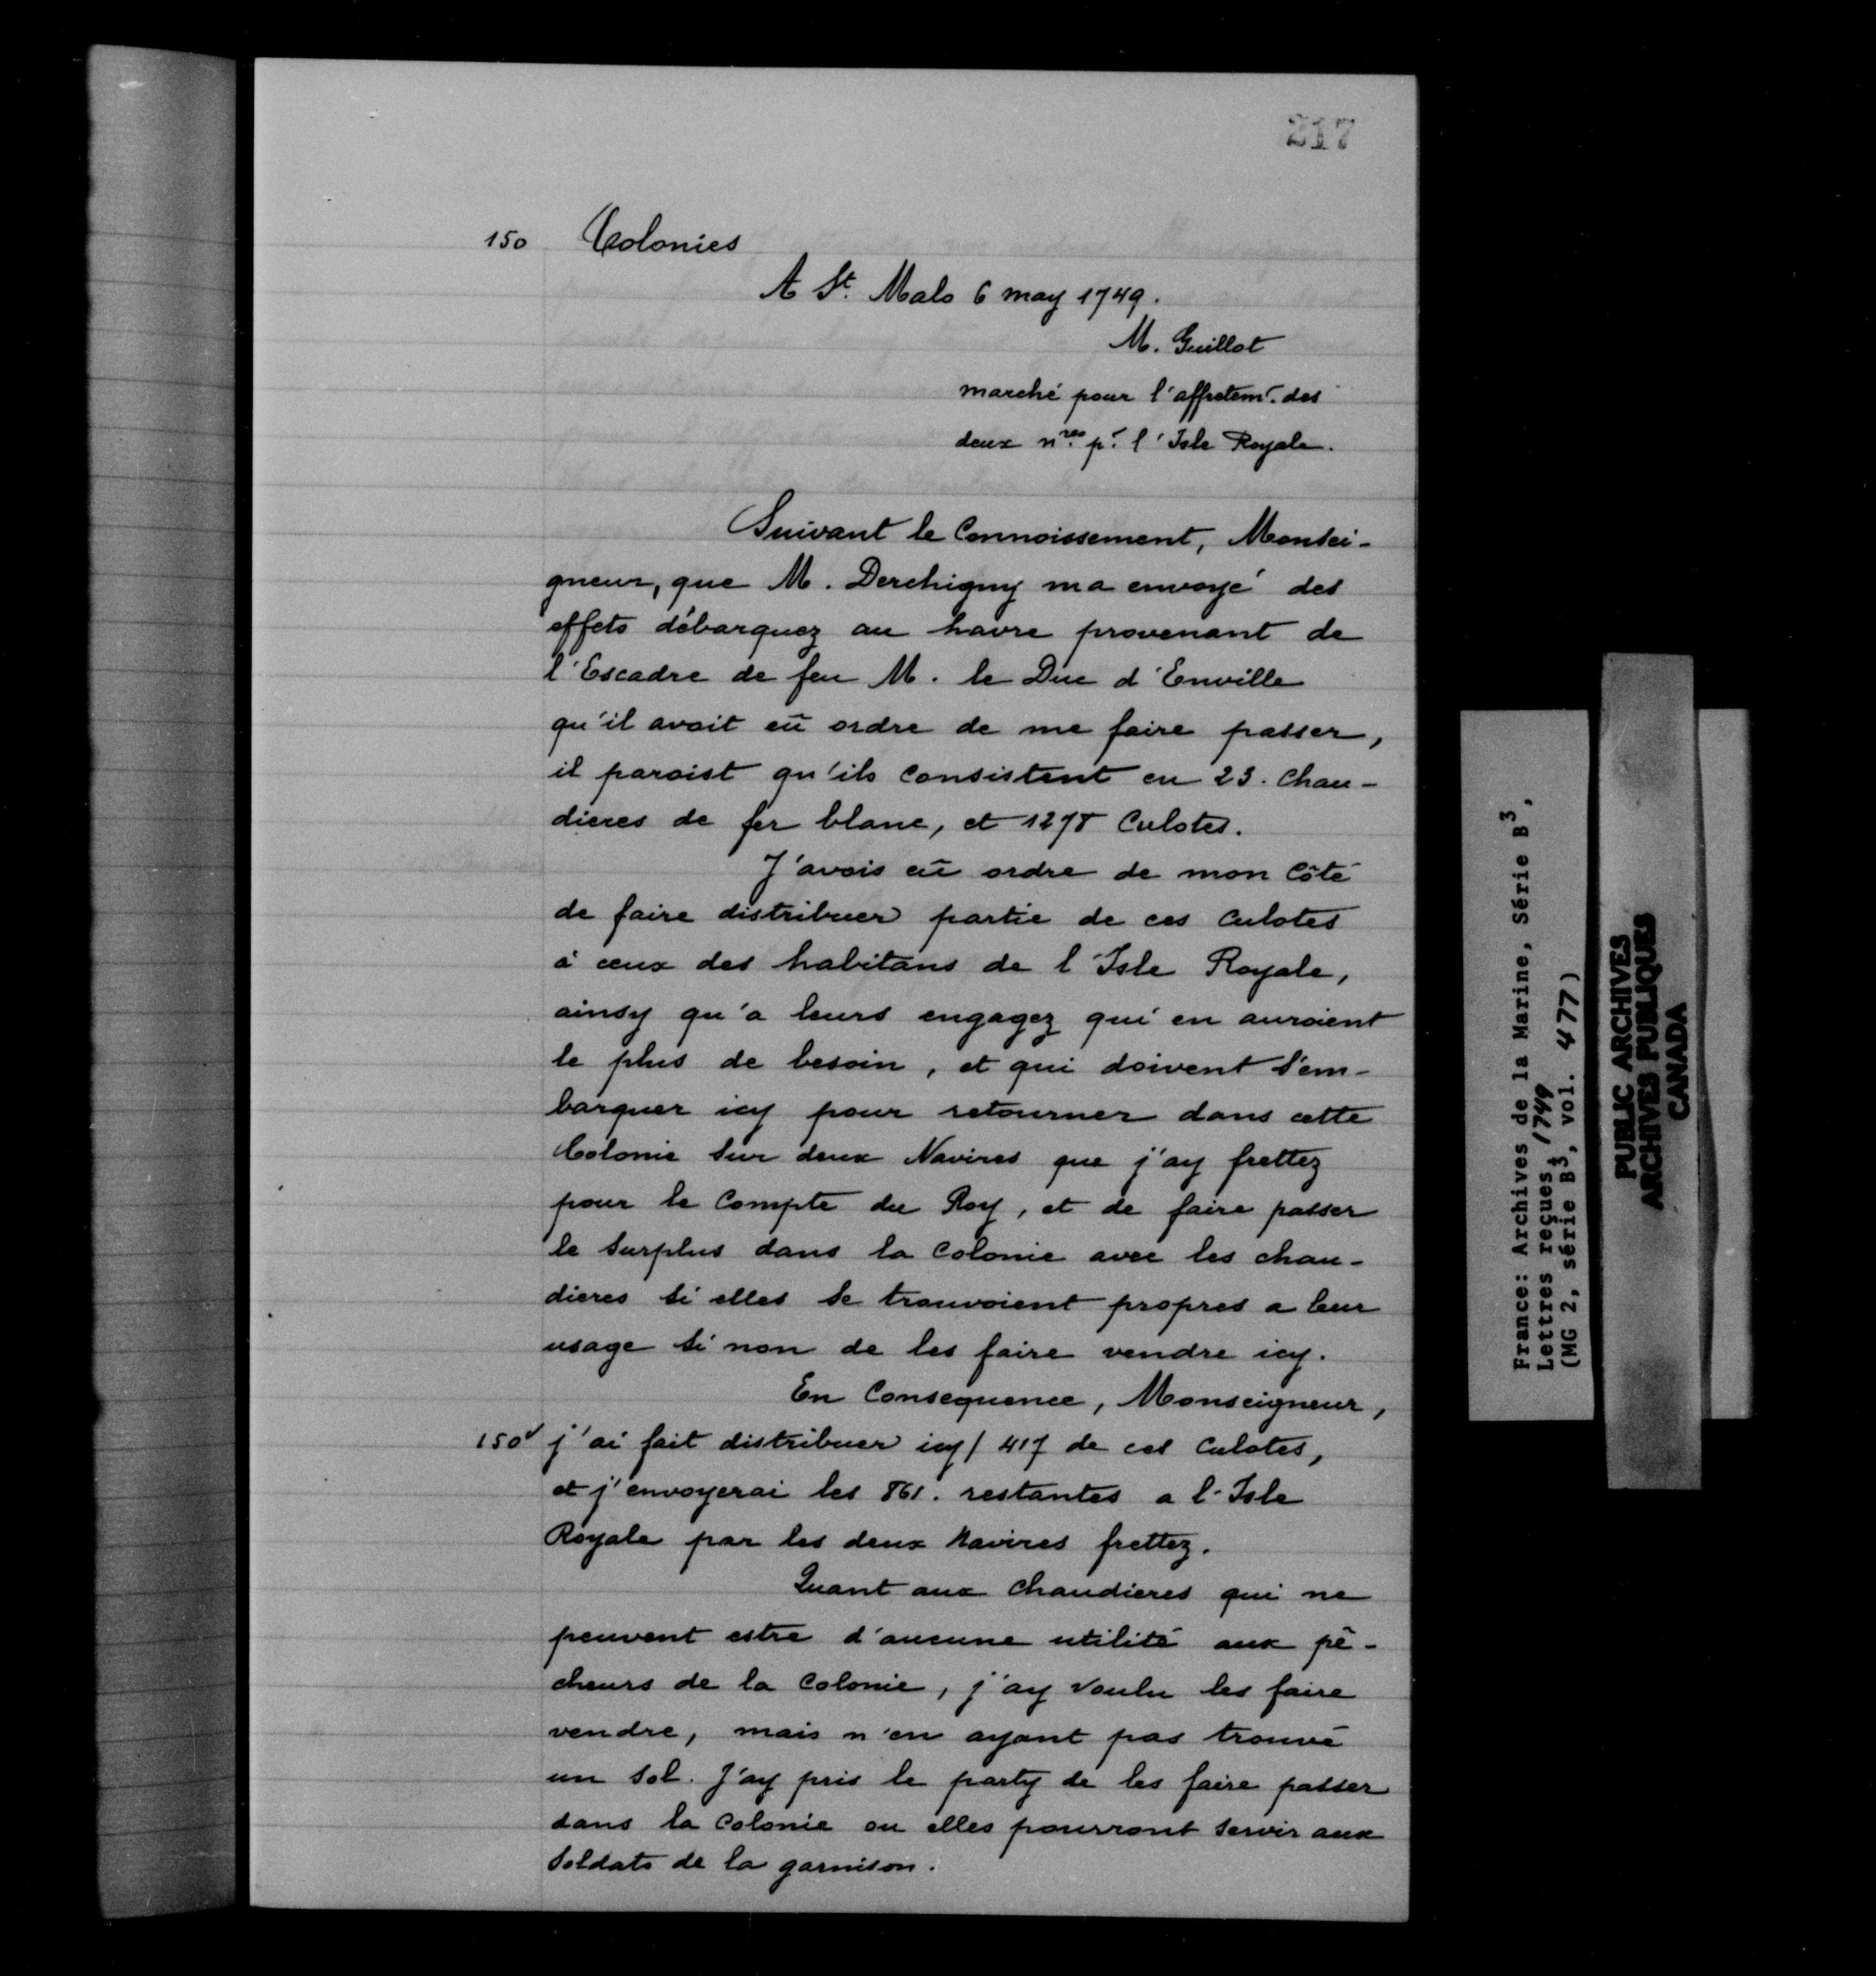 217
150 Colonies
A St. Malo 6 may 1749.
M. Guillot
marché pour l'affretemt. des
deux nres. pr. l'Isle Royale.
Suivant le Connoissement, Monsei-
gneur, que M. Derchigny ma envoyé des
effets débarquez au havre provenant de
l'Escadre de feu M. le Duc d'Enville
qu'il avait eû ordre de me faire passer,
il paroist qu'ils consistent en 23. chau-
dieres de fer blanc, et 1278 Culotes.
J'avois eû ordre de mon Côté
de faire distribuer partie de ces culotes
à ceux des habitans de l'Isle Royale,
ainsy qu'a leurs engagez qui en auroient
le plus de besoin, et qui doivent s'em-
barquer icy pour retourner dans cette
Colonie sur deux Navires que j'ay frettez
pour le Compte du Roy, et de faire passer
le surplus dans la Colonie avec les chau-
dieres si elles se trouvoient propres a leur
usage si non de les faire vendre icy.
En Consequence, Monseigneur,
150v j'ai fait distribuer icy/ 417 de ces Culotes,
et j'envoyerai les 861. restantes a l'Isle
Royale par les deux Navires frettez.
Quant aux Chaudieres qui ne
peuvent estre d'aucune utilité aux pê-
cheurs de la Colonie, j'ay voulu les faire
vendre, mais n'en ayant pas trouvé
un sol. J'ay pris le party de les faire passer
dans la Colonie ou elles pourront servir aux
Soldats de la garnison.
France: Archives de la Marine, Série B3,
Lettres reçues, 1749
(MG 2, série B3, vol. 477)
PUBLIC ARCHIVES
ARCHIVES PUBLIQUES
CANADA